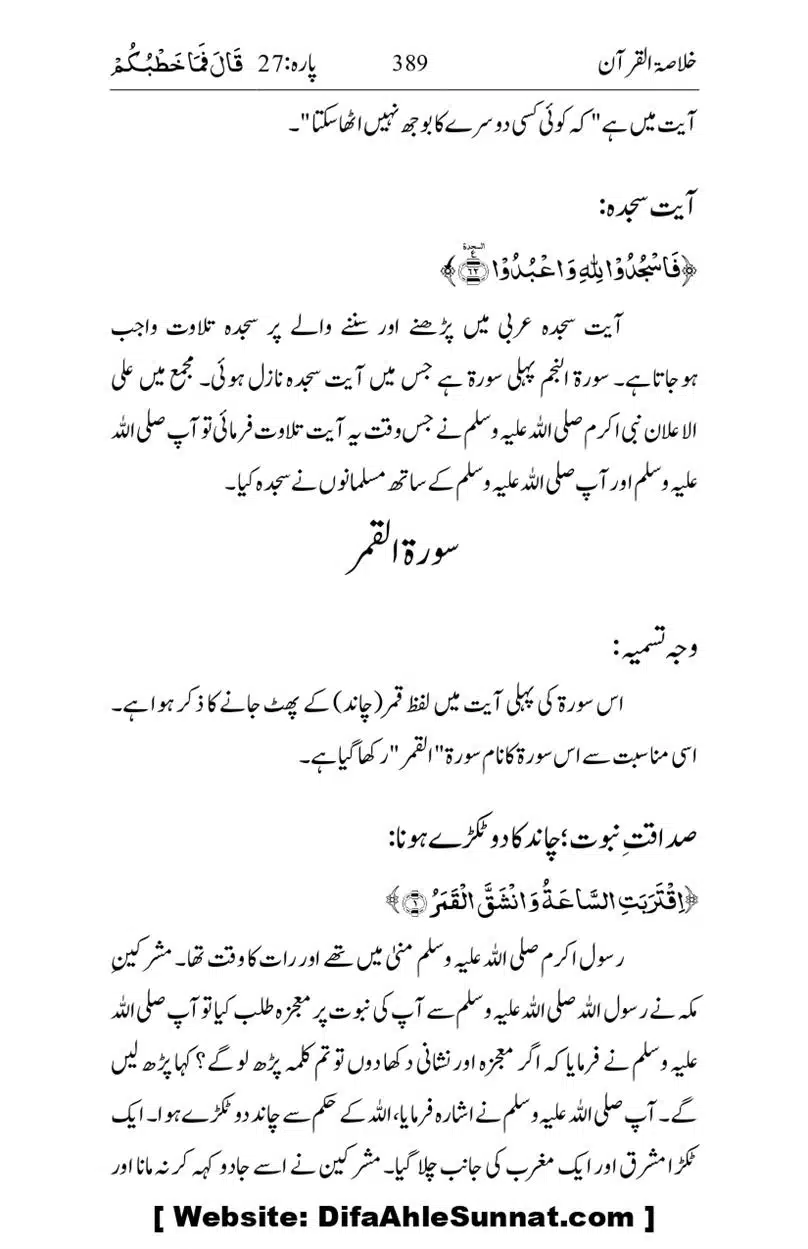 خلاصۃ القرآن 389 پارہ:27 قَالَ فَمَا خَطْبُكُمْ
آیت میں ہے" کہ کوئی کسی دوسرے کا بوجھ نہیں اٹھا سکتا"۔
آیت سجدہ:
﴿فَاسْجُدُوْا لِلّٰهِ وَ اعْبُدُوْا ۩ السجدة ع ۶۲﴾
آیت سجدہ عربی میں پڑھنے اور سننے والے پر سجدہ تلاوت واجب
ہو جاتا ہے۔ سورۃ النجم پہلی سورۃ ہے جس میں آیت سجدہ نازل ہوئی۔ مجمع میں علی
الاعلان نبی اکرم صلی اللہ علیہ وسلم نے جس وقت یہ آیت تلاوت فرمائی تو آپ صلی اللہ
علیہ وسلم اور آپ صلی اللہ علیہ وسلم کے ساتھ مسلمانوں نے سجدہ کیا۔
سورۃ القمر
وجہ تسمیہ:
اس سورۃ کی پہلی آیت میں لفظ قمر (چاند) کے پھٹ جانے کا ذکر ہوا ہے۔
اسی مناسبت سے اس سورۃ کا نام سورۃ "القمر" رکھا گیا ہے۔
صداقتِ نبوت؛ چاند کا دو ٹکڑے ہونا:
﴿اِقْتَرَبَتِ السَّاعَةُ وَ انْشَقَّ الْقَمَرُ ۱﴾
رسول اکرم صلی اللہ علیہ وسلم منیٰ میں تھے اور رات کا وقت تھا۔ مشرکینِ
مکہ نے رسول اللہ صلی اللہ علیہ وسلم سے آپ کی نبوت پر معجزہ طلب کیا تو آپ صلی اللہ
علیہ وسلم نے فرمایا کہ اگر معجزہ اور نشانی دکھا دوں تو تم کلمہ پڑھ لو گے؟ کہا پڑھ لیں
گے۔ آپ صلی اللہ علیہ وسلم نے اشارہ فرمایا، اللہ کے حکم سے چاند دو ٹکڑے ہوا۔ ایک
ٹکڑا مشرق اور ایک مغرب کی جانب چلا گیا۔ مشرکین نے اسے جادو کہہ کر نہ مانا اور
[ Website: DifaAhleSunnat.com ]